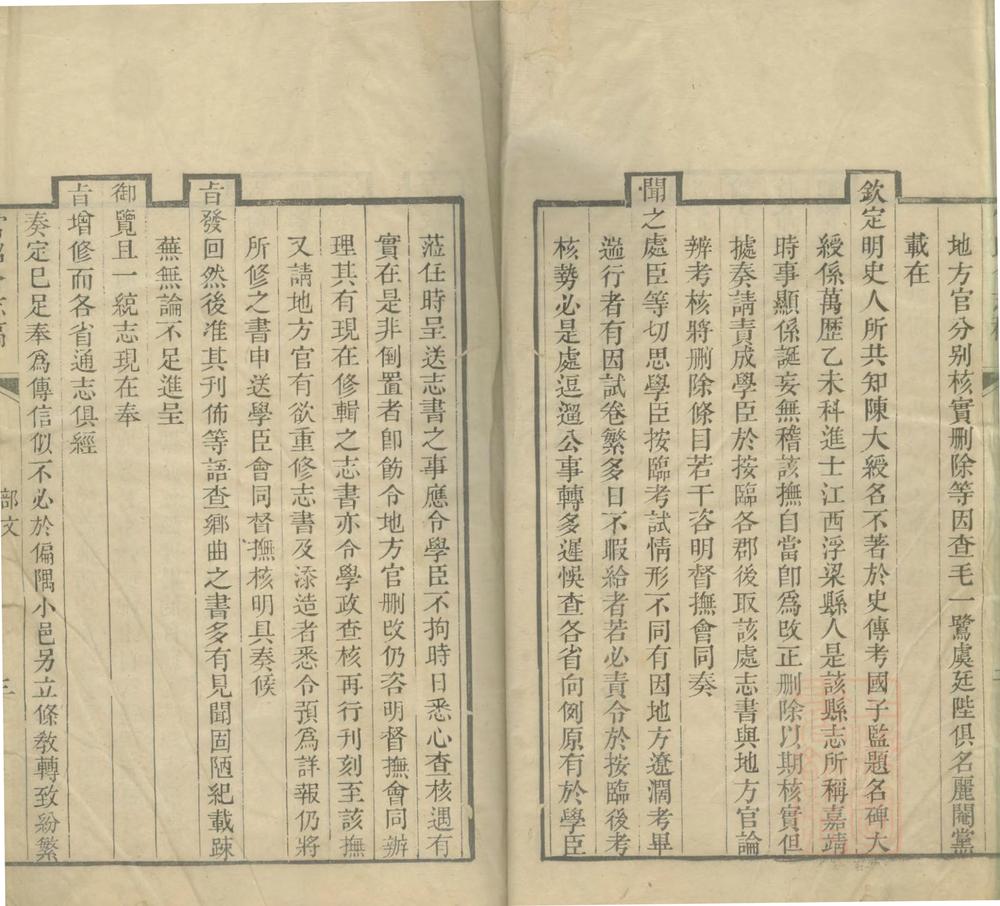 地方官分别核實删除等因查毛一鷺虞廷陛俱名麗閹黨
載在
欽定明史人所共知陳大綬名不著於史傳考國子監題名碑大
綬係萬歷乙未科進士江西浮梁縣人是該縣志所稱嘉靖
時事顯係誕妄無稽該撫自當卽爲改正刪除以期核實但
據奏請責成學臣於按臨各郡後取該處志書與地方官論
辨考核將刪除條目若干咨明督撫會同奏
聞之處臣等切思學臣按臨考試情形不同有因地方遼濶考畢
過行者有因試卷繁多日不暇給者若必責令於按臨後考
核勢必是處逗遛公事轉多遲悞查各省向例原有於學臣
蒞任時呈送志書之事應令學臣不拘時日悉心查核遇有
實在是非倒置者卽飭令地方官刪改仍咨明督撫會同辦
理其有現在修輯之志書亦令學政查核再行刊刻至該撫
又請地方官有欲重修志書及添造者悉令預爲詳報仍將
所修之書申送學臣會同督撫核明具奏候
旨發回然後准其刊佈等語查鄉曲之書多有見聞固陋紀載踈
蕪無論不足進呈
御覽且一統志現在奉
旨增修而各省通志俱經
奏定已足奉爲傳信似不必於偏隅小邑另立條教轉致紛繁
部文
三